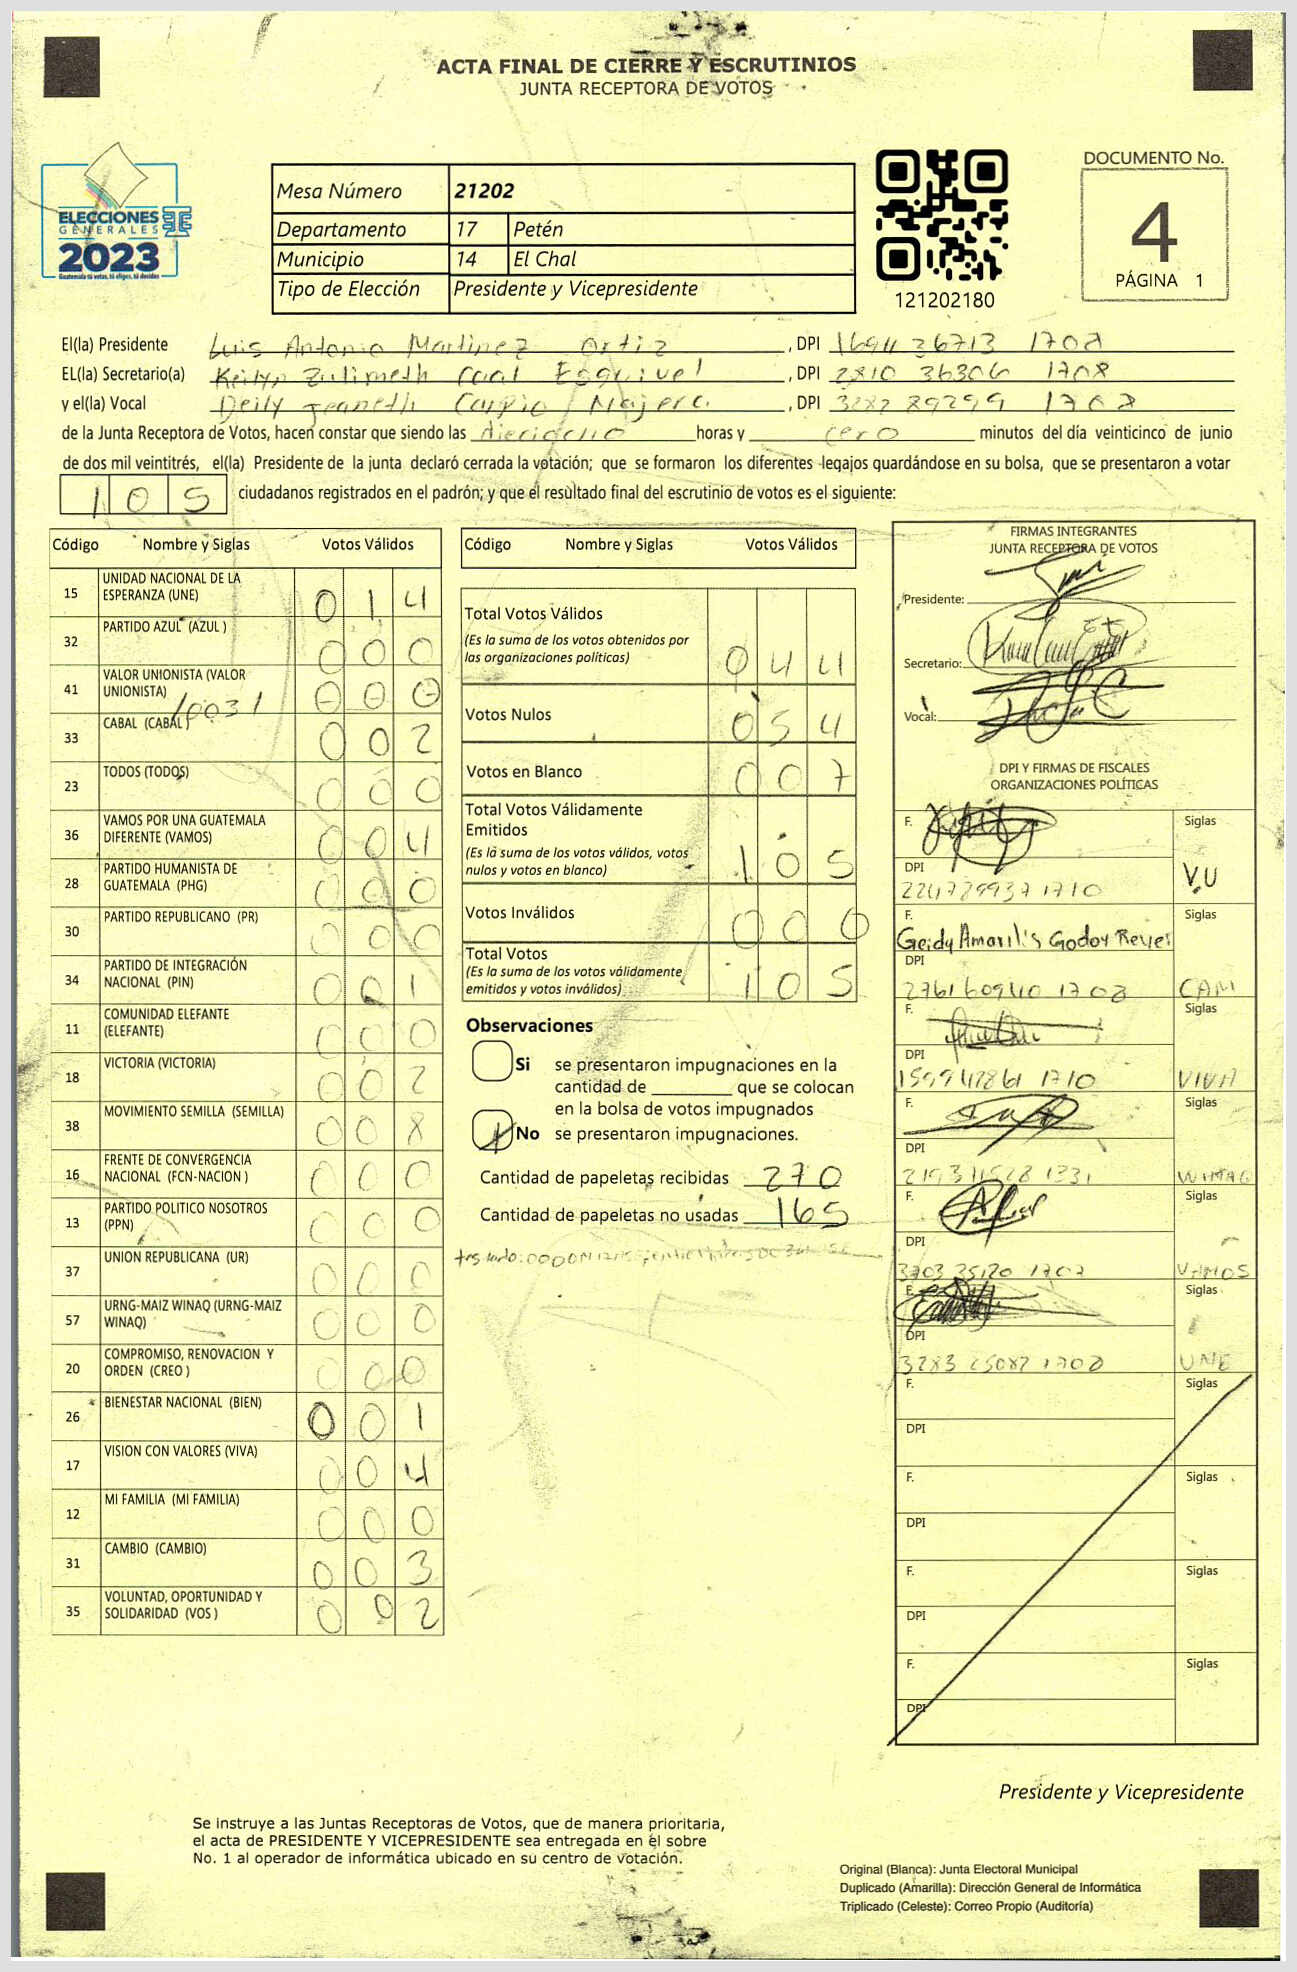 ACTA FINAL DE CIERRE Y ESCRUTINIOS
JUNTA RECEPTORA DE VOTOS
ELECCIONES
GENERALES
2023
Guatemala tú votas, tú eliges, tú decides
Mesa Número 21202
Departamento 17 Petén
Municipio 14 El Chal
Tipo de Elección Presidente y Vicepresidente
121202180
DOCUMENTO No.
4
PÁGINA 1
El(la) Presidente Luis Antonio Martinez Ortiz, DPI 1708
EL(la) Secretario(a) Caal Esquivel, DPI 2810 36306 1708
y el(la) Vocal Deily Jeaneth Carpio Najera, DPI 3282 89299 1708
de la Junta Receptora de Votos, hacen constar que siendo las dieciocho horas y cero minutos del día veinticinco de junio
de dos mil veintitrés, el(la) Presidente de la junta declaró cerrada la votación; que se formaron los diferentes legajos guardándose en su bolsa, que se presentaron a votar
105 ciudadanos registrados en el padrón; y que el resultado final del escrutinio de votos es el siguiente:
Código Nombre y Siglas Votos Válidos
15 UNIDAD NACIONAL DE LA ESPERANZA (UNE) 0 1 4
32 PARTIDO AZUL (AZUL ) 0 0 0
41 VALOR UNIONISTA (VALOR UNIONISTA) 0 0 0
10031
33 CABAL (CABAL ) 0 0 2
23 TODOS (TODOS) 0 0 0
36 VAMOS POR UNA GUATEMALA DIFERENTE (VAMOS) 0 0 4
28 PARTIDO HUMANISTA DE GUATEMALA (PHG) 0 0 0
30 PARTIDO REPUBLICANO (PR) 0 0 0
34 PARTIDO DE INTEGRACIÓN NACIONAL (PIN) 0 0 1
11 COMUNIDAD ELEFANTE (ELEFANTE) 0 0 0
18 VICTORIA (VICTORIA) 0 0 2
38 MOVIMIENTO SEMILLA (SEMILLA) 0 0 8
16 FRENTE DE CONVERGENCIA NACIONAL (FCN-NACION ) 0 0 0
13 PARTIDO POLITICO NOSOTROS (PPN) 0 0 0
37 UNION REPUBLICANA (UR) 0 0 0
57 URNG-MAIZ WINAQ (URNG-MAIZ WINAQ) 0 0 0
20 COMPROMISO, RENOVACION Y ORDEN (CREO ) 0 0 0
26 BIENESTAR NACIONAL (BIEN) 0 0 1
17 VISION CON VALORES (VIVA) 0 0 4
12 MI FAMILIA (MI FAMILIA) 0 0 0
31 CAMBIO (CAMBIO) 0 0 3
35 VOLUNTAD, OPORTUNIDAD Y SOLIDARIDAD (VOS ) 0 0 2
Código Nombre y Siglas Votos Válidos
Total Votos Válidos 0 4 4
(Es la suma de los votos obtenidos por
las organizaciones políticas)
Votos Nulos 0 5 4
Votos en Blanco 0 0 7
Total Votos Válidamente
Emitidos 1 0 5
(Es la suma de los votos válidos, votos
nulos y votos en blanco)
Votos Inválidos 0 0 0
Total Votos 1 0 5
(Es la suma de los votos válidamente
emitidos y votos inválidos)
Observaciones
Si se presentaron impugnaciones en la
cantidad de ______ que se colocan
en la bolsa de votos impugnados
No se presentaron impugnaciones.
Cantidad de papeletas recibidas 270
Cantidad de papeletas no usadas 165
FIRMAS INTEGRANTES
JUNTA RECEPTORA DE VOTOS
Presidente:
Secretario:
Vocal:
DPI Y FIRMAS DE FISCALES
ORGANIZACIONES POLÍTICAS
F. Siglas
DPI V.U
1710
F. Siglas
Geidy Amarilis Godoy Reyes
DPI
2761 60940 1708 CAM
F. Siglas
DPI
1710 VIVA
F. Siglas
DPI
1331 WINAQ
F. Siglas
DPI
3703 35120 1707 VAMOS
F. Siglas
DPI
3283 25087 1708 UNE
F. Siglas
DPI
F. Siglas
DPI
F. Siglas
DPI
F. Siglas
DPI
Presidente y Vicepresidente
Se instruye a las Juntas Receptoras de Votos, que de manera prioritaria,
el acta de PRESIDENTE Y VICEPRESIDENTE sea entregada en el sobre
No. 1 al operador de informática ubicado en su centro de votación.
Original (Blanca): Junta Electoral Municipal
Duplicado (Amarilla): Dirección General de Informática
Triplicado (Celeste): Correo Propio (Auditoría)